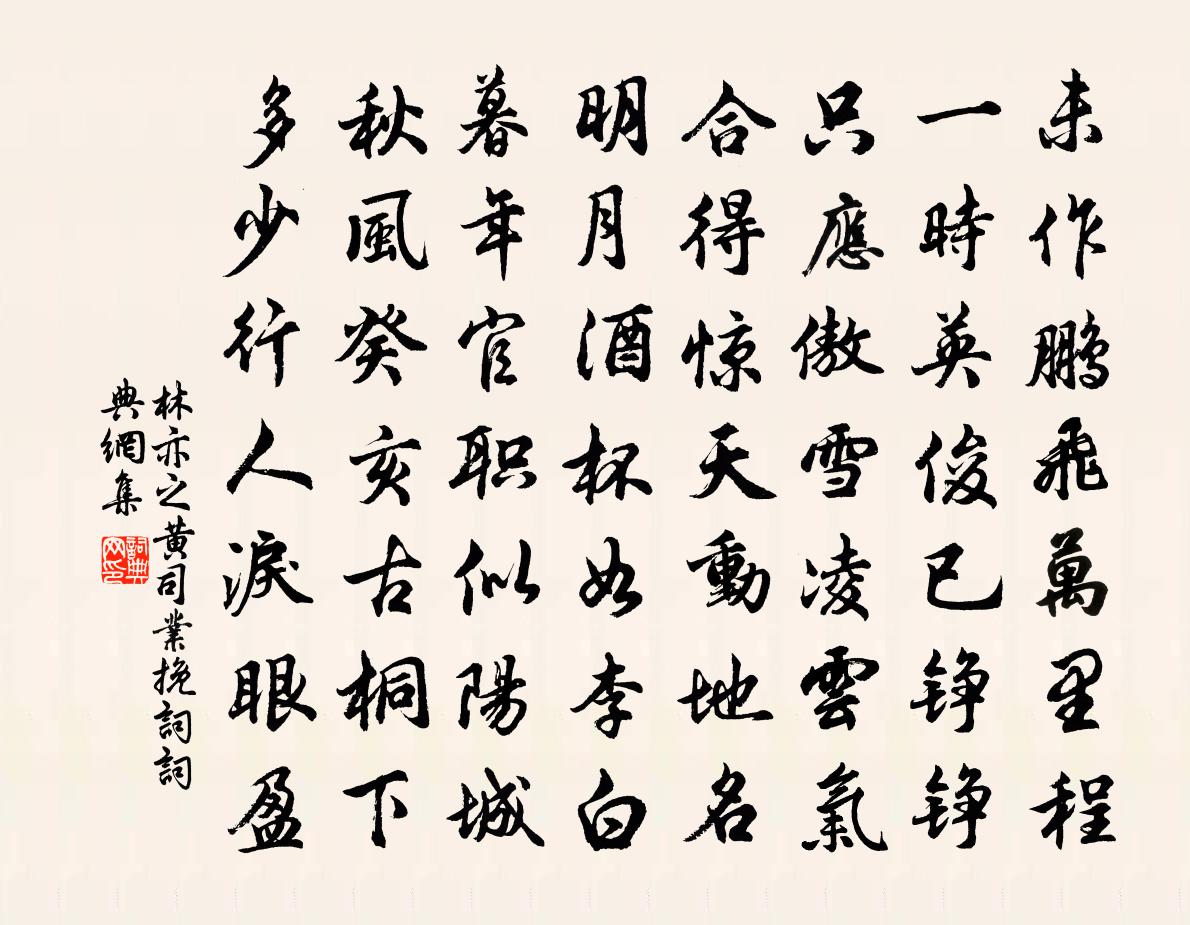 未作鵬飛萬里程
一時英俊已铮铮
只應傲雪凌雲氣
合得惊天動地名
明月酒杯如李白
暮年官职似陽城
秋風癸亥古桐下
多少行人淚眼盈
林亦之黄司業挽詞詞
典網集
詞典
网印